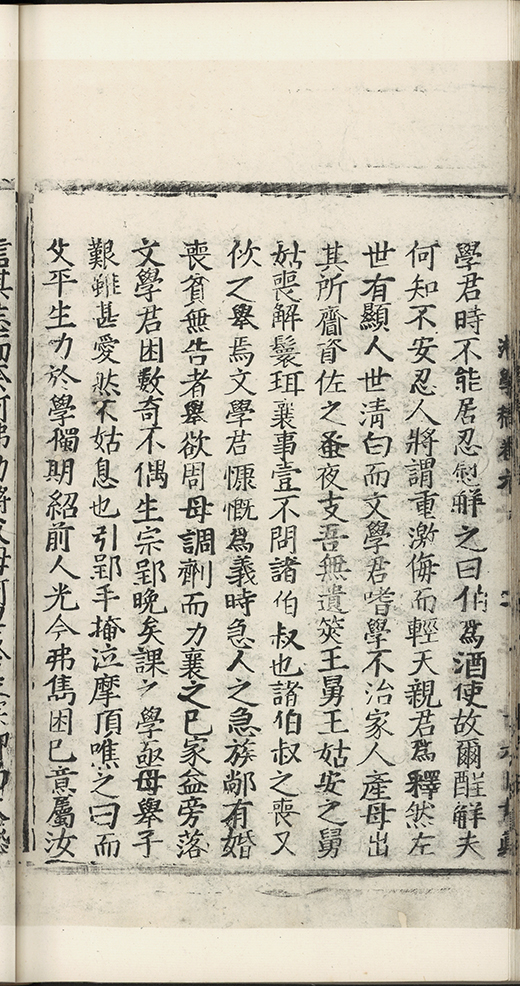 學君時不能居忍慰觧之曰伯爲酒使故爾醒觧夫
何知不安忍人將謂重激侮而輕天親君爲釋然左
世有顯人世清白而文學君嗜學不治家人產母出
其所齎資佐之蚤夜支吾無遺筴王舅王姑安之舅
姑喪解鬟珥襄事壹不問諸伯叔也諸伯叔之喪又
佽之舉焉文學君慷慨爲義時急人之急族鄰有婚
喪貧無告者舉欲周母調劑而力襄之已家益旁落
文學君困數奇不偶生宗郢晚矣課之學亟母舉子
艱雖甚愛然不姑息也引郢手掩泣摩頂噍之曰而
父平生力於學獨期紹前人光今弗雋困已意屬汝